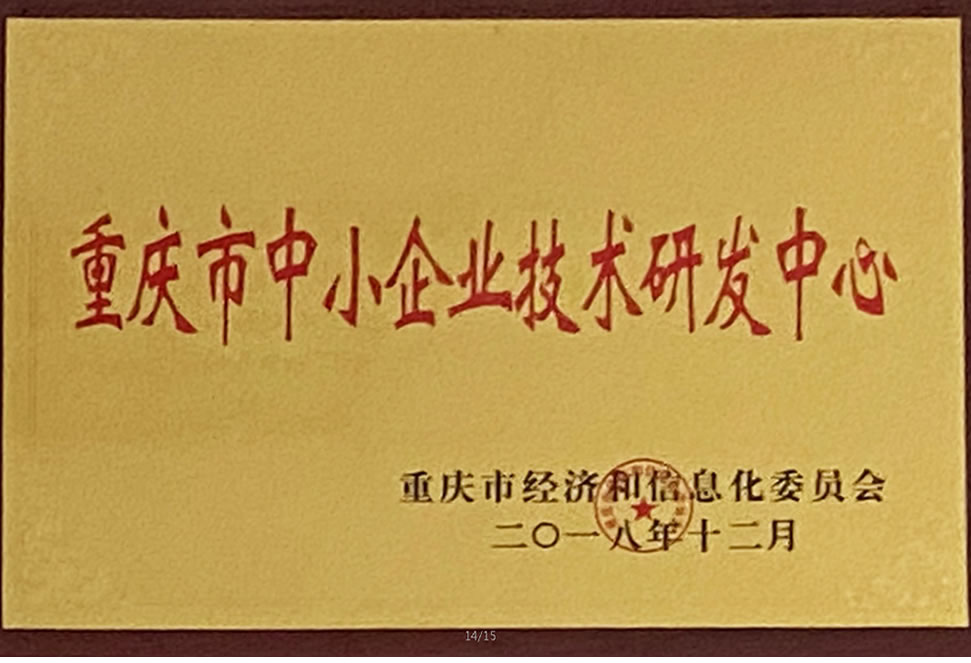 重庆市中小企业技术研发中心
重庆市经济和信息化委员会
二〇一八年十二月
14/15